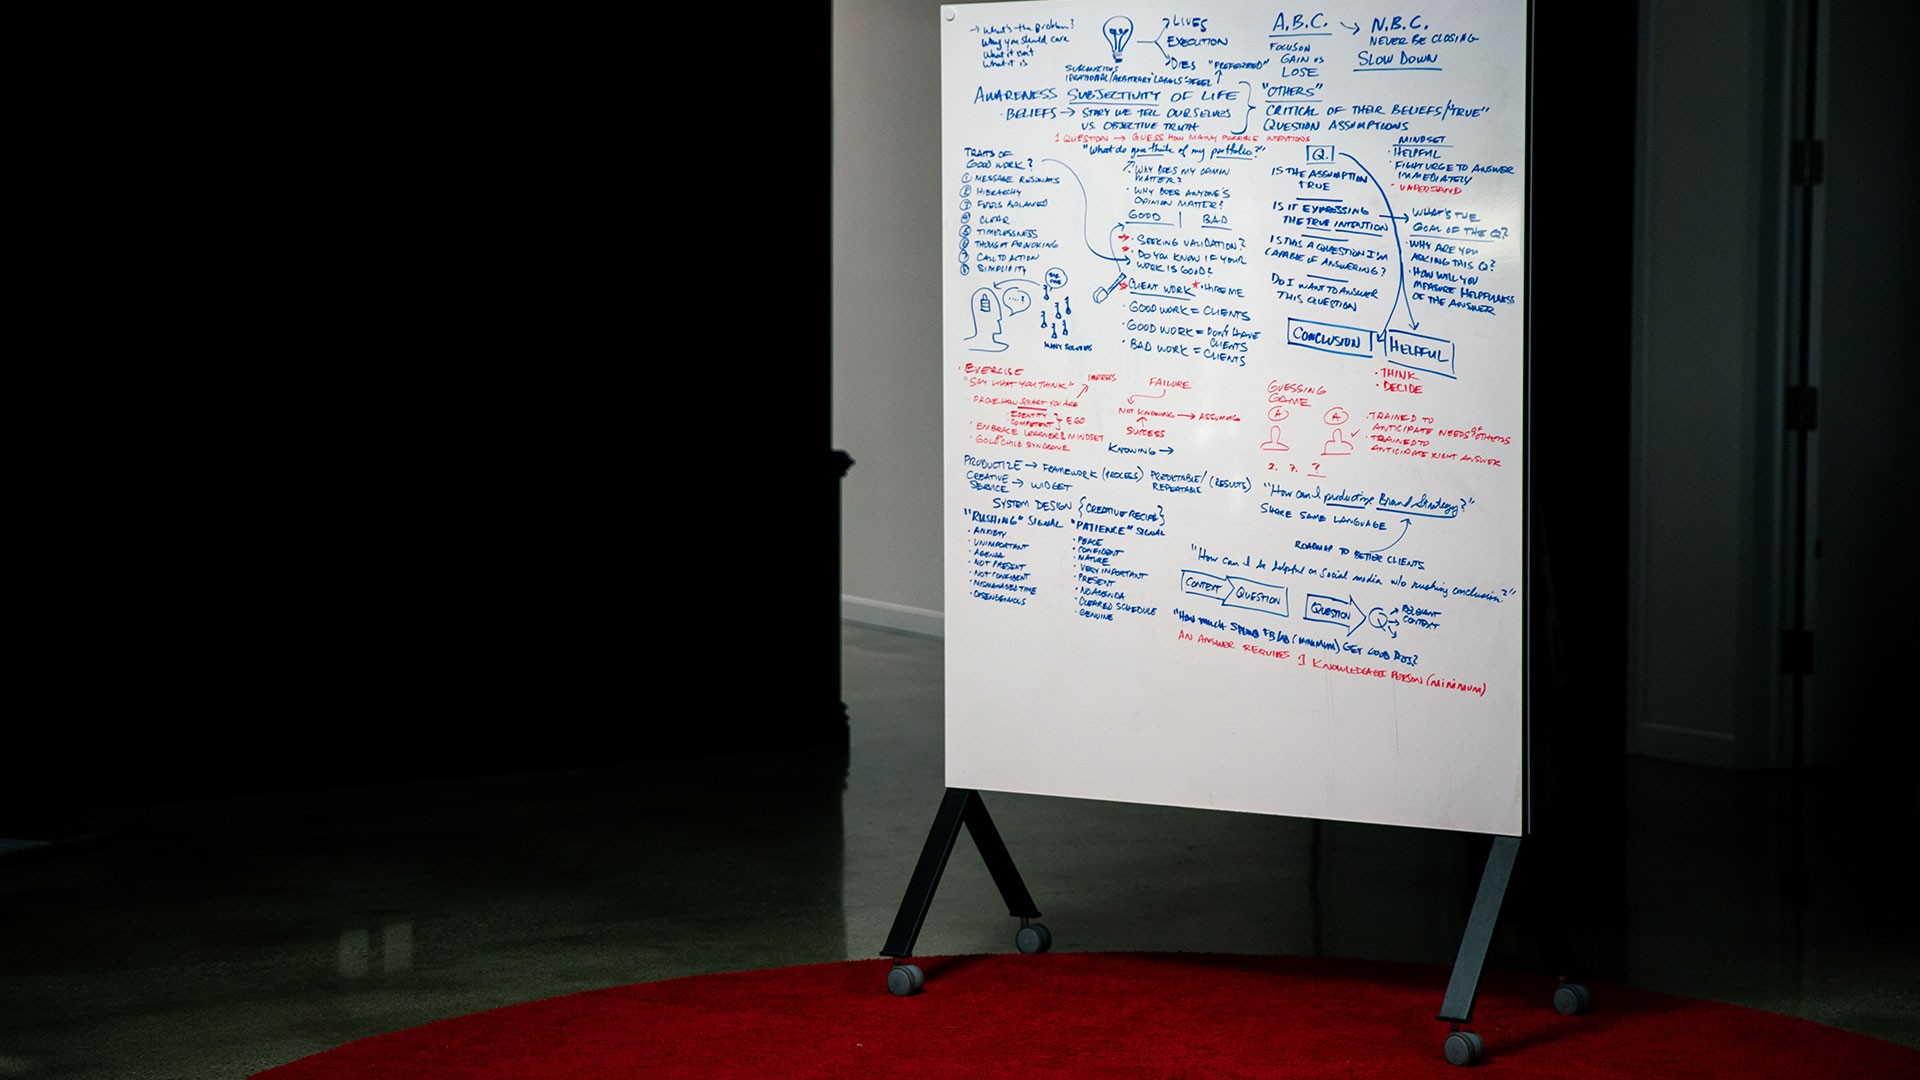 → What's the problem?
Why you should care
What it isn't
What it is
? LIVES
EXECUTION
DIES "PREFERRED"
IRRATIONAL/ARBITRARY LABELS
A.B.C. → N.B.C.
NEVER BE CLOSING
SLOW DOWN
FOCUS ON
GAIN vs
LOSE
AWARENESS SUBJECTIVITY OF LIFE
BELIEFS → STORY WE TELL OURSELVES
VS. OBJECTIVE TRUTH
"OTHERS"
CRITICAL OF THEIR BELIEFS/"TRUE"
QUESTION ASSUMPTIONS
1 QUESTION → GUESS HOW MANY POSSIBLE INTENTIONS
TRAITS OF
GOOD WORK?
① MESSAGE RESONATES
② HIERARCHY
③ FEELS BALANCED
④ CLEAR
⑤ TIMELESSNESS
⑥ THOUGHT PROVOKING
⑦ CALL TO ACTION
⑧ SIMPLICITY
MANY SOLUTIONS
"What do you think of my portfolio?"
? WHY DOES MY OPINION
MATTER?
• WHY DOES ANYONE'S
OPINION MATTER?
GOOD | BAD
• SEEKING VALIDATION?
• DO YOU KNOW IF YOUR
WORK IS GOOD?
CLIENT WORK * • HIRE ME
• GOOD WORK = CLIENTS
• GOOD WORK = DON'T HAVE
CLIENTS
• BAD WORK = CLIENTS
Q.
IS THE ASSUMPTION
TRUE
IS IT EXPRESSING
THE TRUE INTENTION
IS THIS A QUESTION I'M
CAPABLE OF ANSWERING?
DO I WANT TO ANSWER
THIS QUESTION
CONCLUSION
HELPFUL
• THINK
• DECIDE
MINDSET
• HELPFUL
• FIGHT URGE TO ANSWER
IMMEDIATELY
• UNDERSTAND
WHAT'S THE
GOAL OF THE Q?
• WHY ARE YOU
ASKING THIS Q?
• HOW WILL YOU
MEASURE HELPFULNESS
OF THE ANSWER
• EXERCISE
"SAY WHAT YOU THINK"
IMPRESS
• PROVE HOW SMART YOU ARE
• IDENTITY
COMPETENT } EGO
• EMBRACE LEARNER'S MINDSET
• GOLD CHILD SYNDROME
FAILURE
NOT KNOWING → ASSUMING
SUCCESS
KNOWING →
GUESSING
GAME
A
A
• TRAINED TO
ANTICIPATE NEEDS OF OTHERS
• TRAINED TO
ANTICIPATE RIGHT ANSWER
2. 7. ?
PRODUCTIZE → FRAMEWORK (PROCESS) PREDICTABLE/ (RESULTS)
REPEATABLE
CREATIVE
SERVICE → WIDGET
SYSTEM DESIGN {CREATIVE RECIPE}
"How can I productize Brand Strategy?"
SHARE SAME LANGUAGE
ROADMAP TO BETTER CLIENTS
"RUSHING" SIGNAL
• ANXIETY
• UNIMPORTANT
• AGENDA
• NOT PRESENT
• NOT CONFIDENT
• MISMANAGED TIME
• DISENGENUOUS
"PATIENCE" SIGNAL
• PEACE
• CONFIDENT
• MATURE
• VERY IMPORTANT
• PRESENT
• NO AGENDA
• CLEARED SCHEDULE
• GENUINE
"How can I be helpful on social media w/o rushing conclusion?"
CONTEXT
QUESTION
QUESTION
Q
RELEVANT
CONTEXT
"HOW MUCH SPEND FB/AD (MINIMUM) GET GOOD ROI?
AN ANSWER REQUIRES 1 KNOWLEDGABLE PERSON (MINIMUM)